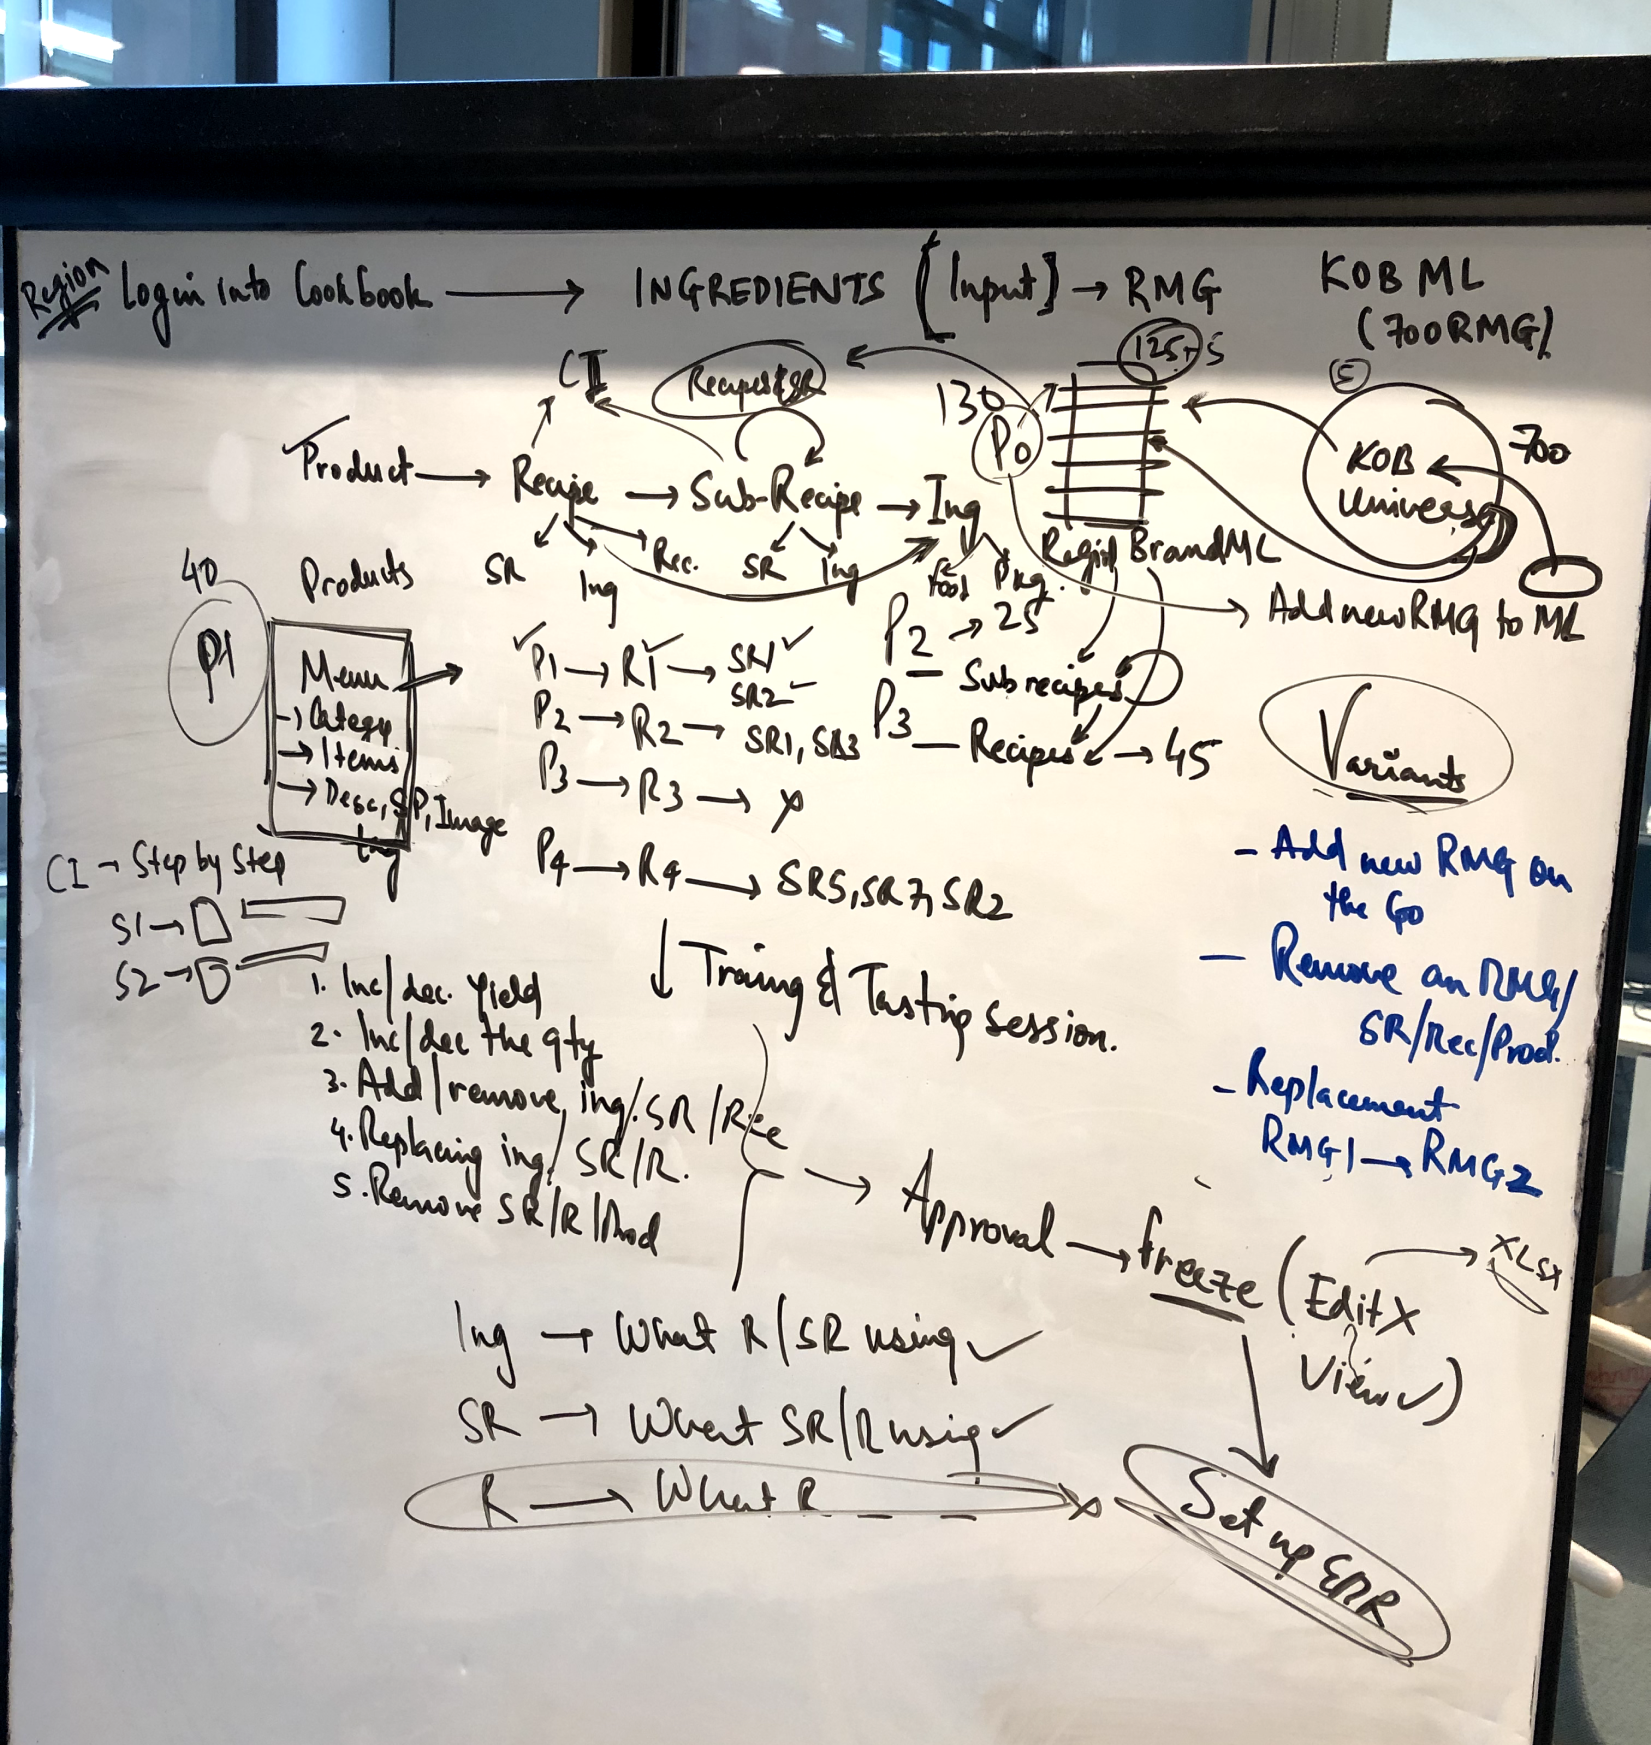 Region Login into Cookbook → INGREDIENTS [Input] → RMG
KOB ML
(700RMG)
CI
Recipes & SR
130
125+5
5
P0
700
KOB
Universe
✓Product → Recipe → Sub-Recipe → Ing
SR
Ing
Rec.
SR
Ing
Food
Pkg.
Region BrandML
Add new RMG to ML
40
P1
Products
Menu
→ Category
→ Items
→ Desc, SP, Image
Ing
✓P1 → R1✓ → SR1✓
SR2✓
P2 → R2 → SR1, SR3
P3 → R3 → X
P4 → R4 → SR5, SR7, SR2
P2 → 25
— Subrecipes
P3
— Recipes → 45
Variants
CI → Step by Step
S1 →
S2 →
↓ Traing & Tasting Session.
1. Inc/dec. Yield
2. Inc/dec the qty
3. Add/remove ing/SR/Rec
4. Replacing ing/SR/R.
5. Remove SR/R/Prod
- Add new RMG on
the Go
- Remove an RMG/
SR/Rec/Prod.
- Replacement
RMG1 → RMG2
→ Approval → Freeze (Edit X → XLSX
View ✓)
Ing → What R/SR using ✓
SR → What SR/R using ✓
R → What R X
Set up